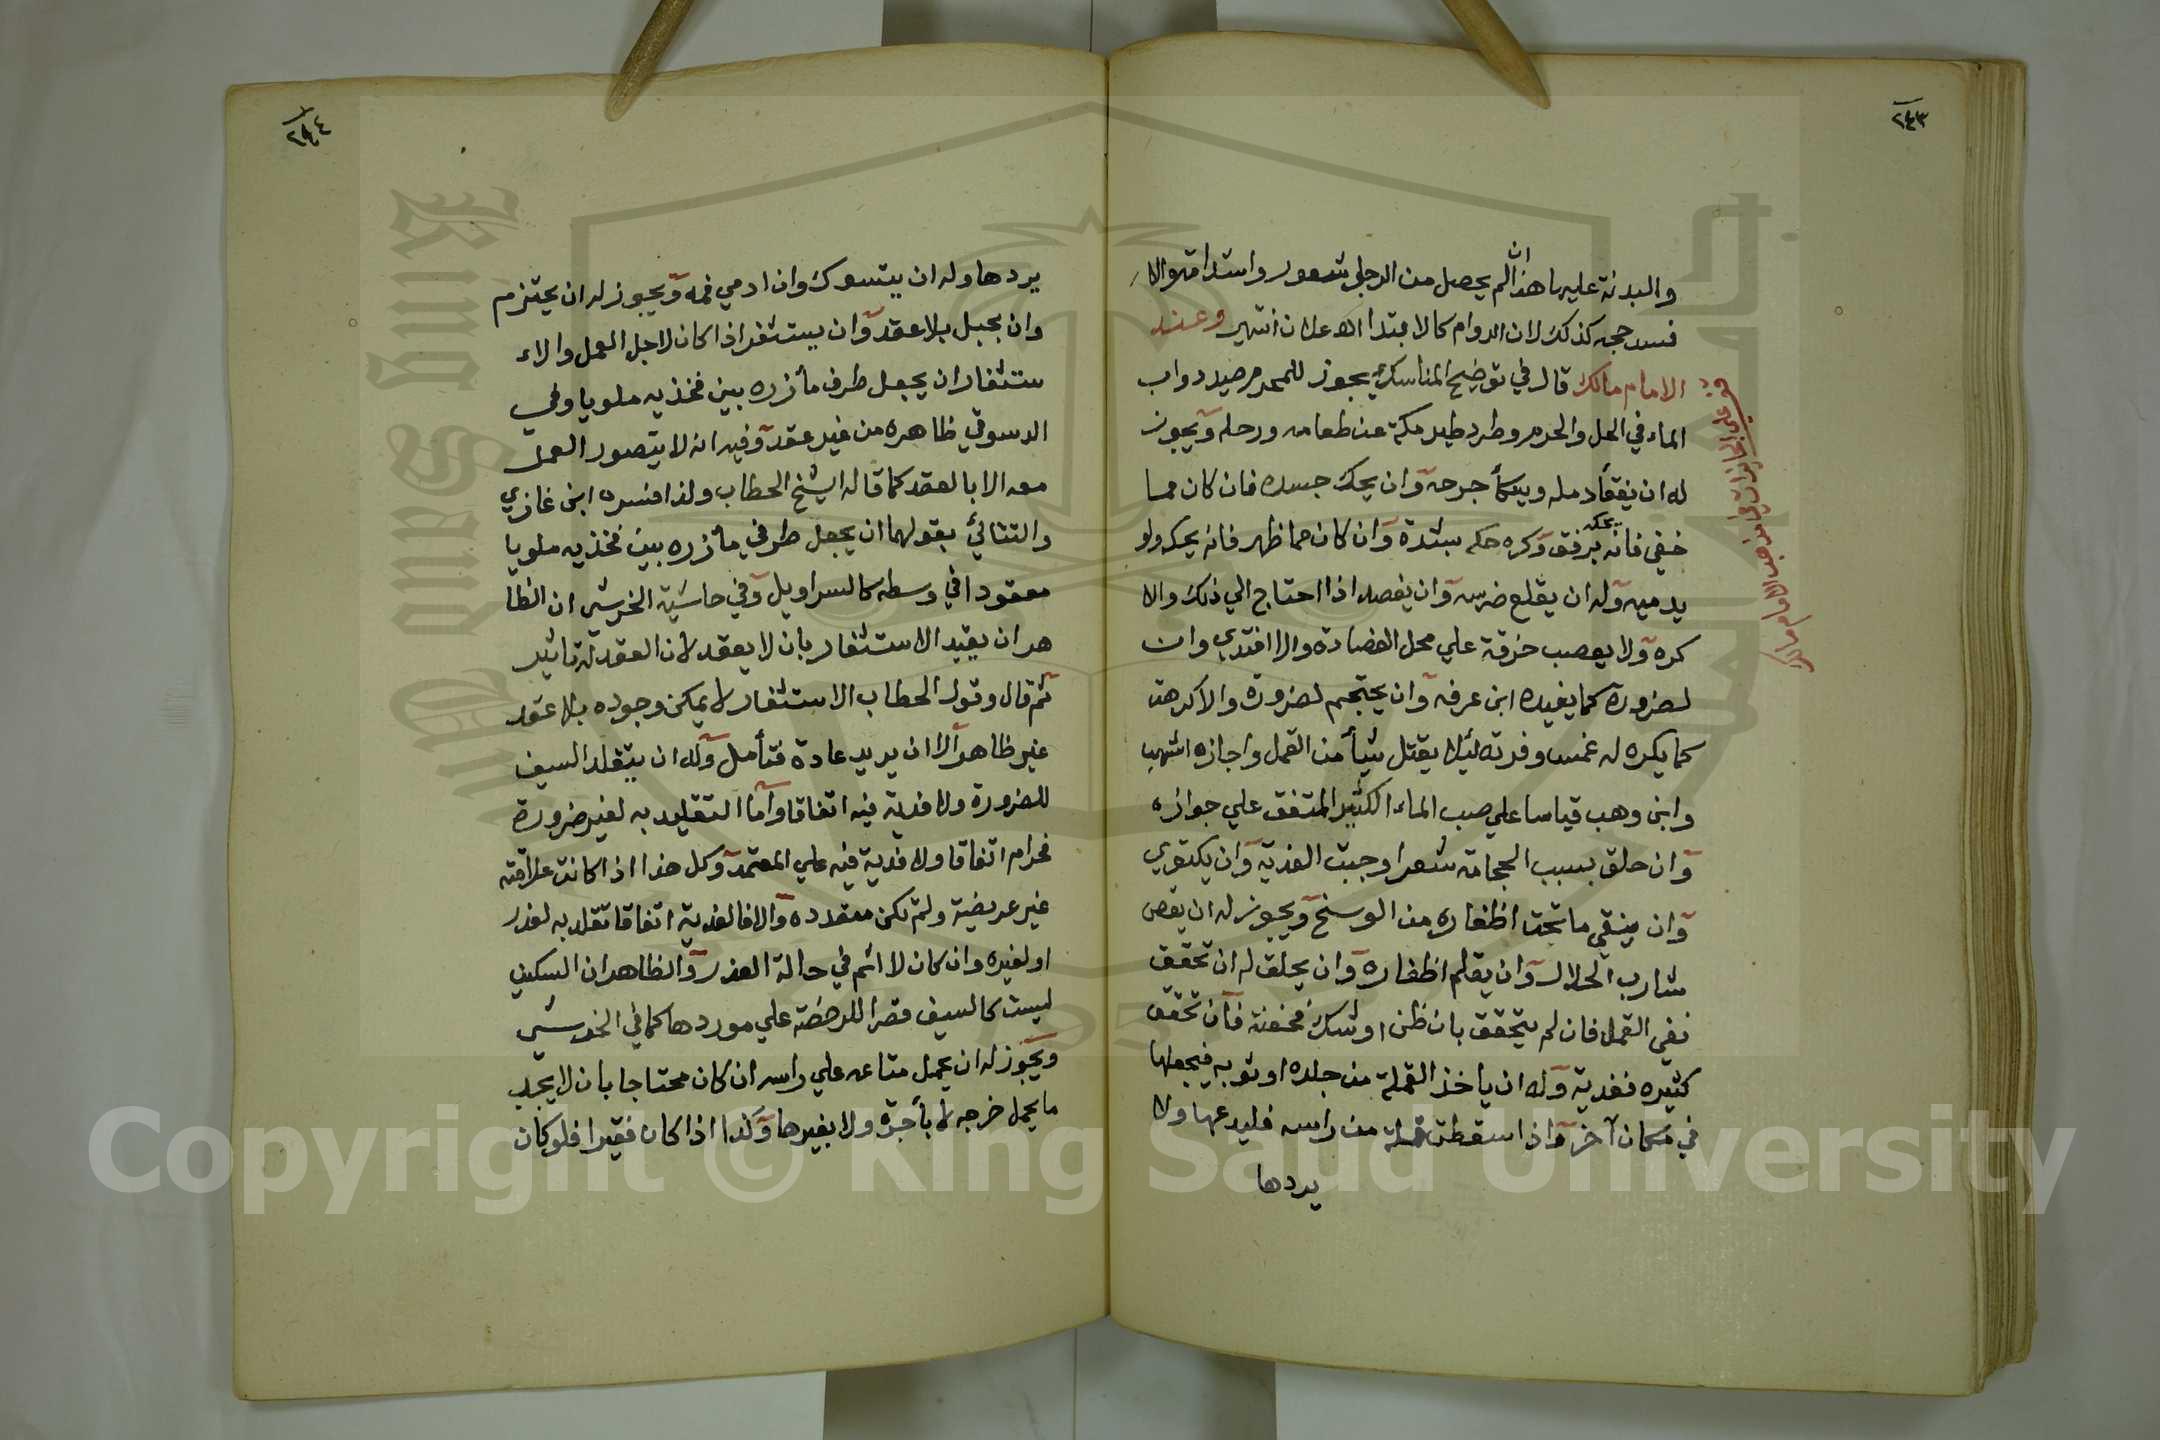 ٢٤٣
والبدنة عليها هذا ان لم يحصل من الرجل شعور واستدامة والا
فسد حجه كذلك لان الدوام كالابتدا الاعلان انتهى وعند
الامام مالك قال في توضيح المناسك يجوز للمحرم صيد دواب
الماء في الحل والحرم وطرد طير مكة عن طعامه ورحله ويجوز
له ان يفقأ دمله وينكأ جرحه وان يحك جسده فان كان مما
خفي فانه يحكه برفق وكره حكه بشدة وان كان مما ظهر فانه يحكه ولو
يدميه وله ان يقلع ضرسه وان يفصد اذا احتاج الي ذلك والا
كره ولا يعصب خرقة علي محل الفصادة والا افتدي وان
لضرورة كما يفيده ابن عرفه وان يحتجم لضرورة والا كرهت
كما يكره له غمس وفرته ليلا يقتل شيأ من القمل واجازه اشهب
وابن وهب قياسا علي صب الماء الكثير المتفق علي جوازه
وان حلق بسبب الحجامة شعرا وجبت الفدية وان يكتوي
وان ينقي ما تحت اظفاره من الوسخ ويجوز له ان يقص
شارب الحلال وان يقلم اظفاره وان يحلق له ان تحقق
نفي القمل فان لم يتحقق بان ظن او شك فحفنة فان تحقق
كثيره ففدية وله ان ياخذ القملة من جلده او ثوبه فيجعلها
في مكان آخر واذا سقطت قملة من راسه فليدعها ولا
يردها
علي الجائزات في مذهب الامام مالك
٢٤٤
يردها وله ان يتسوك وان ادمي فمه ويجوز له ان يحتزم
وان بحبل بلا عقد وان يستثفر اذا كان لاجل العمل والاء
ستثفار ان يجعل طرف مأزره بين فخذيه ملويا وفي
الدسوقي ظاهره من غير عقد وفيه انه لا يتصور العمل
معه الا بالعقد كما قاله الشيخ الحطاب ولذا فسره ابن غازي
والتتائي بقولهما ان يجعل طرفي مأزره بين فخذيه ملويا
معقودا في وسطه كالسراويل وفي حاشية الخرشي ان الظا
هر ان يقيد الاستثفار بان لا يعقد لان العقد له تاثير
ثم قال وقول الحطاب الاستثفار لا يمكن وجوده بلا عقد
غير ظاهر الا ان يريد عادة فتأمل وله ان يتقلد السيف
للضرورة ولا فدية فيه اتفاقا واما التقليد به لغير ضرورة
فحرام اتفاقا ولا فدية فيه علي المعتمد وكل هذا اذا كانت علاقته
غير عريضة ولم تكن متعدده والا فالفدية اتفاقا تقلد به لعذر
او لغيره وان كان لا اثم في حالة العذر والظاهر ان السكين
ليست كالسيف قصرا للرخصة علي موردها كما في الخرشي
ويجوز له ان يحمل متاعه علي راسه ان كان محتاجا بان لا يجد
ما يحمل خرجه لا بأجرة ولا بغيرها وكذا اذا كان فقيرا فلو كان
Copyright © King Saud University